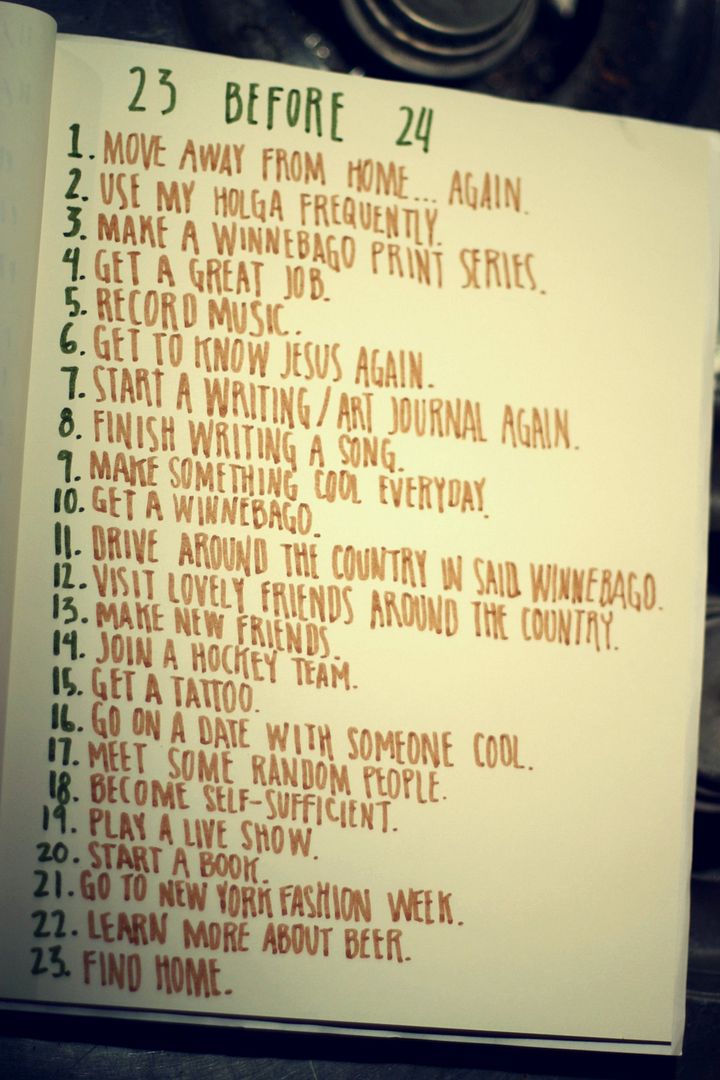 23 BEFORE 24
1. MOVE AWAY FROM HOME... AGAIN.
2. USE MY HOLGA FREQUENTLY.
3. MAKE A WINNEBAGO PRINT SERIES.
4. GET A GREAT JOB.
5. RECORD MUSIC.
6. GET TO KNOW JESUS AGAIN.
7. START A WRITING/ART JOURNAL AGAIN.
8. FINISH WRITING A SONG.
9. MAKE SOMETHING COOL EVERYDAY.
10. GET A WINNEBAGO.
11. DRIVE AROUND THE COUNTRY IN SAID WINNEBAGO.
12. VISIT LOVELY FRIENDS AROUND THE COUNTRY.
13. MAKE NEW FRIENDS.
14. JOIN A HOCKEY TEAM.
15. GET A TATTOO.
16. GO ON A DATE WITH SOMEONE COOL.
17. MEET SOME RANDOM PEOPLE.
18. BECOME SELF-SUFFICIENT.
19. PLAY A LIVE SHOW.
20. START A BOOK.
21. GO TO NEW YORK FASHION WEEK.
22. LEARN MORE ABOUT BEER.
23. FIND HOME.